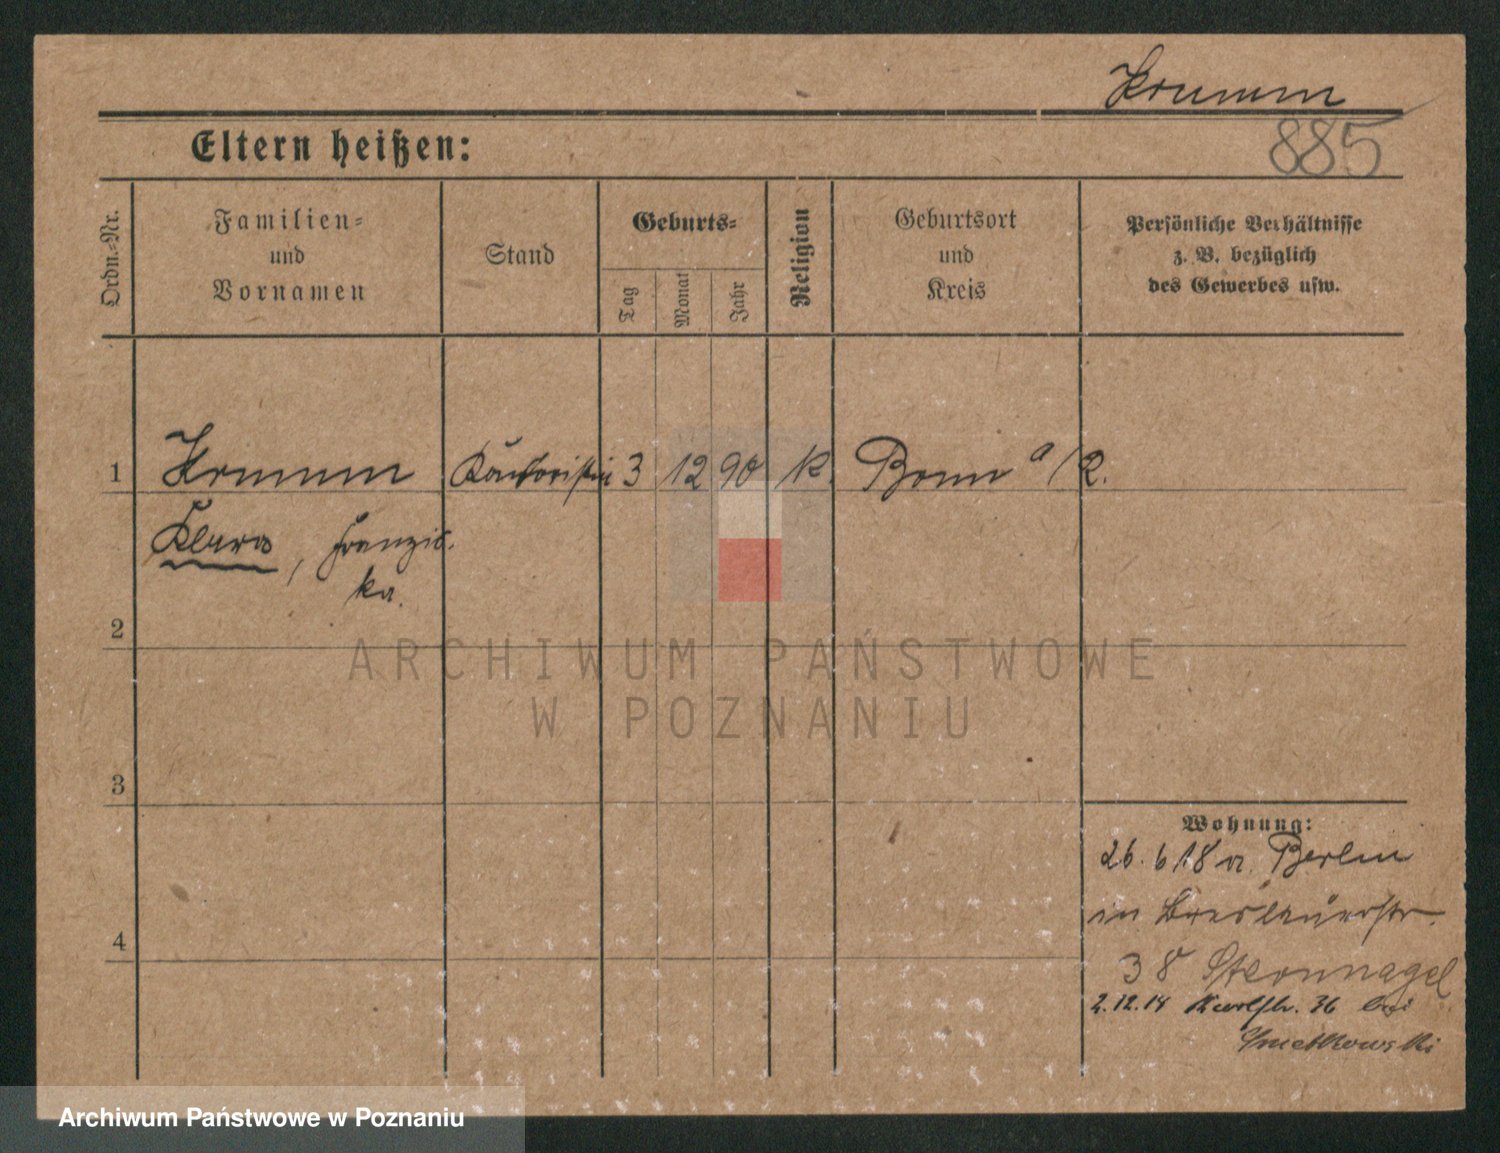 Krumm
885
Eltern heißen:
Ordn.-Nr.
Familien-
und
Vornamen
Stand
Geburts-
Tag
Monat
Jahr
Religion
Geburtsort
und
Kreis
Persönliche Verhältnisse
z. B. bezüglich
des Gewerbes usw.
1 Krumm Kontoristin 3 12 90 K. Bonn a/R.
Klara, Franzis-
ka.
2
3
4
ARCHIWUM PAŃSTWOWE
W POZNANIU
Wohnung:
26. 6 18 v. Berlin
in Breslauerstr.
38 Sternnagel
2.12.18 Karlstr. 36 bei
Smetkowski
Archiwum Państwowe w Poznaniu